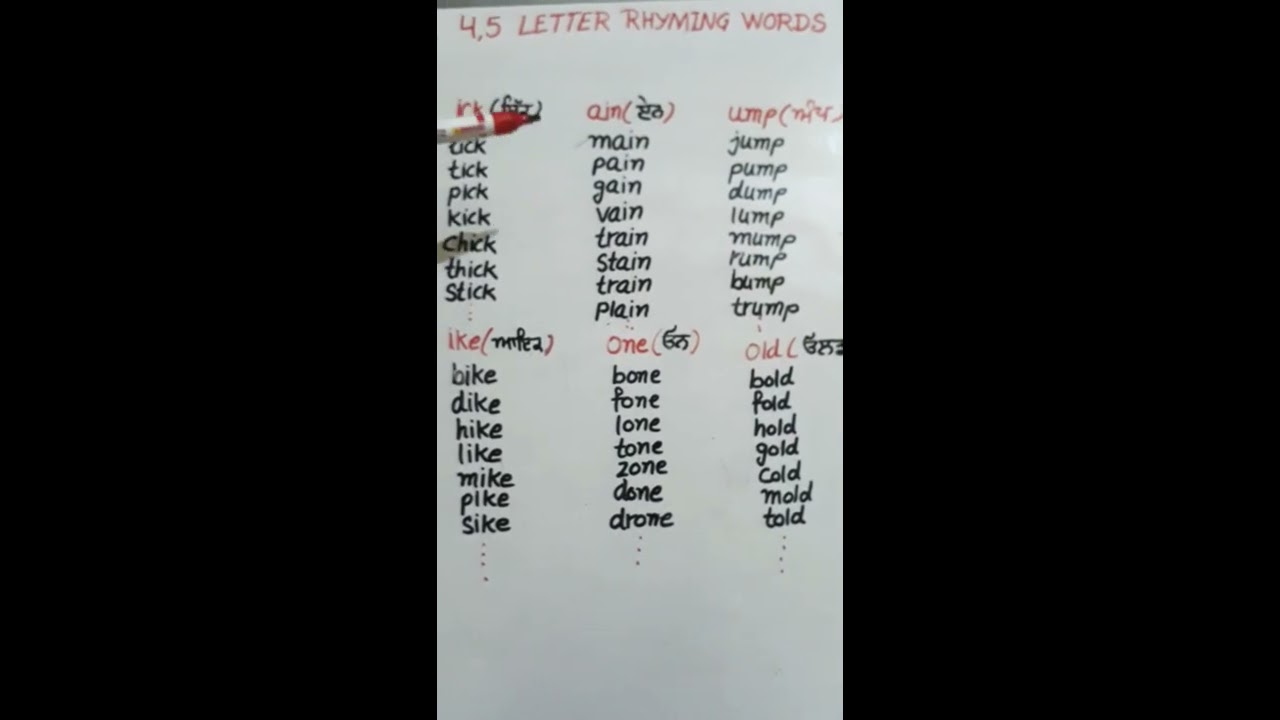 4,5 LETTER RHYMING WORDS
ick
tick
pick
kick
chick
thick
stick
ain(ਏਨ)
main
pain
gain
vain
train
stain
train
plain
ump(ਅੰਪ)
jump
pump
dump
lump
mump
rump
bump
trump
ike(ਆਇਕ)
bike
dike
hike
like
mike
pike
sike
one(ਓਨ)
bone
fone
lone
tone
zone
done
drone
old(
bold
fold
hold
gold
cold
mold
told